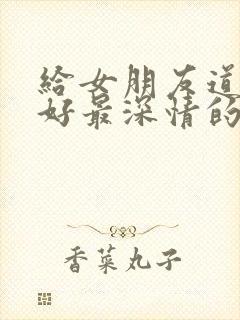 給女朋友道
好最深情的
香菜丸子